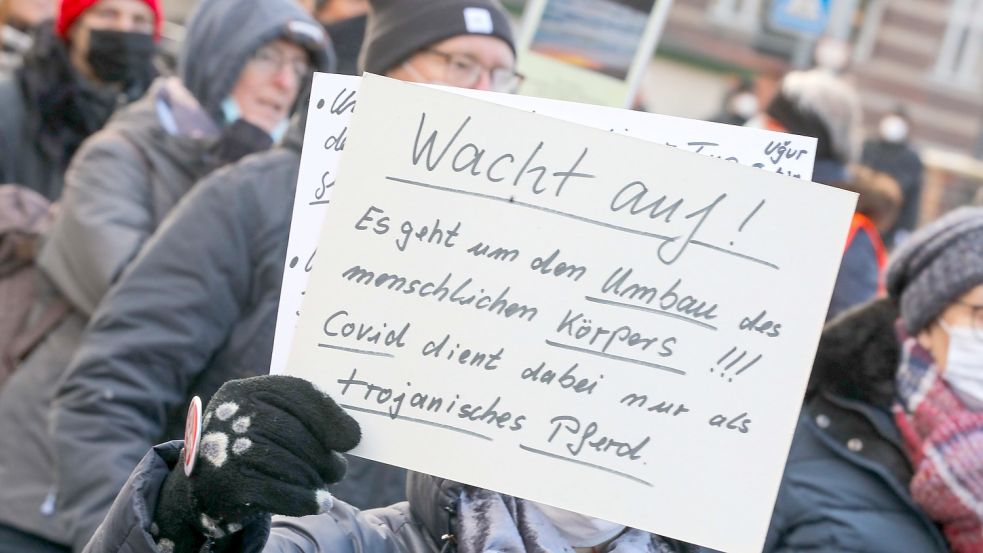 Wacht auf!
Es geht um den Umbau des
menschlichen Körpers !!!
Covid dient dabei nur als
trojanisches Pferd.
uğur